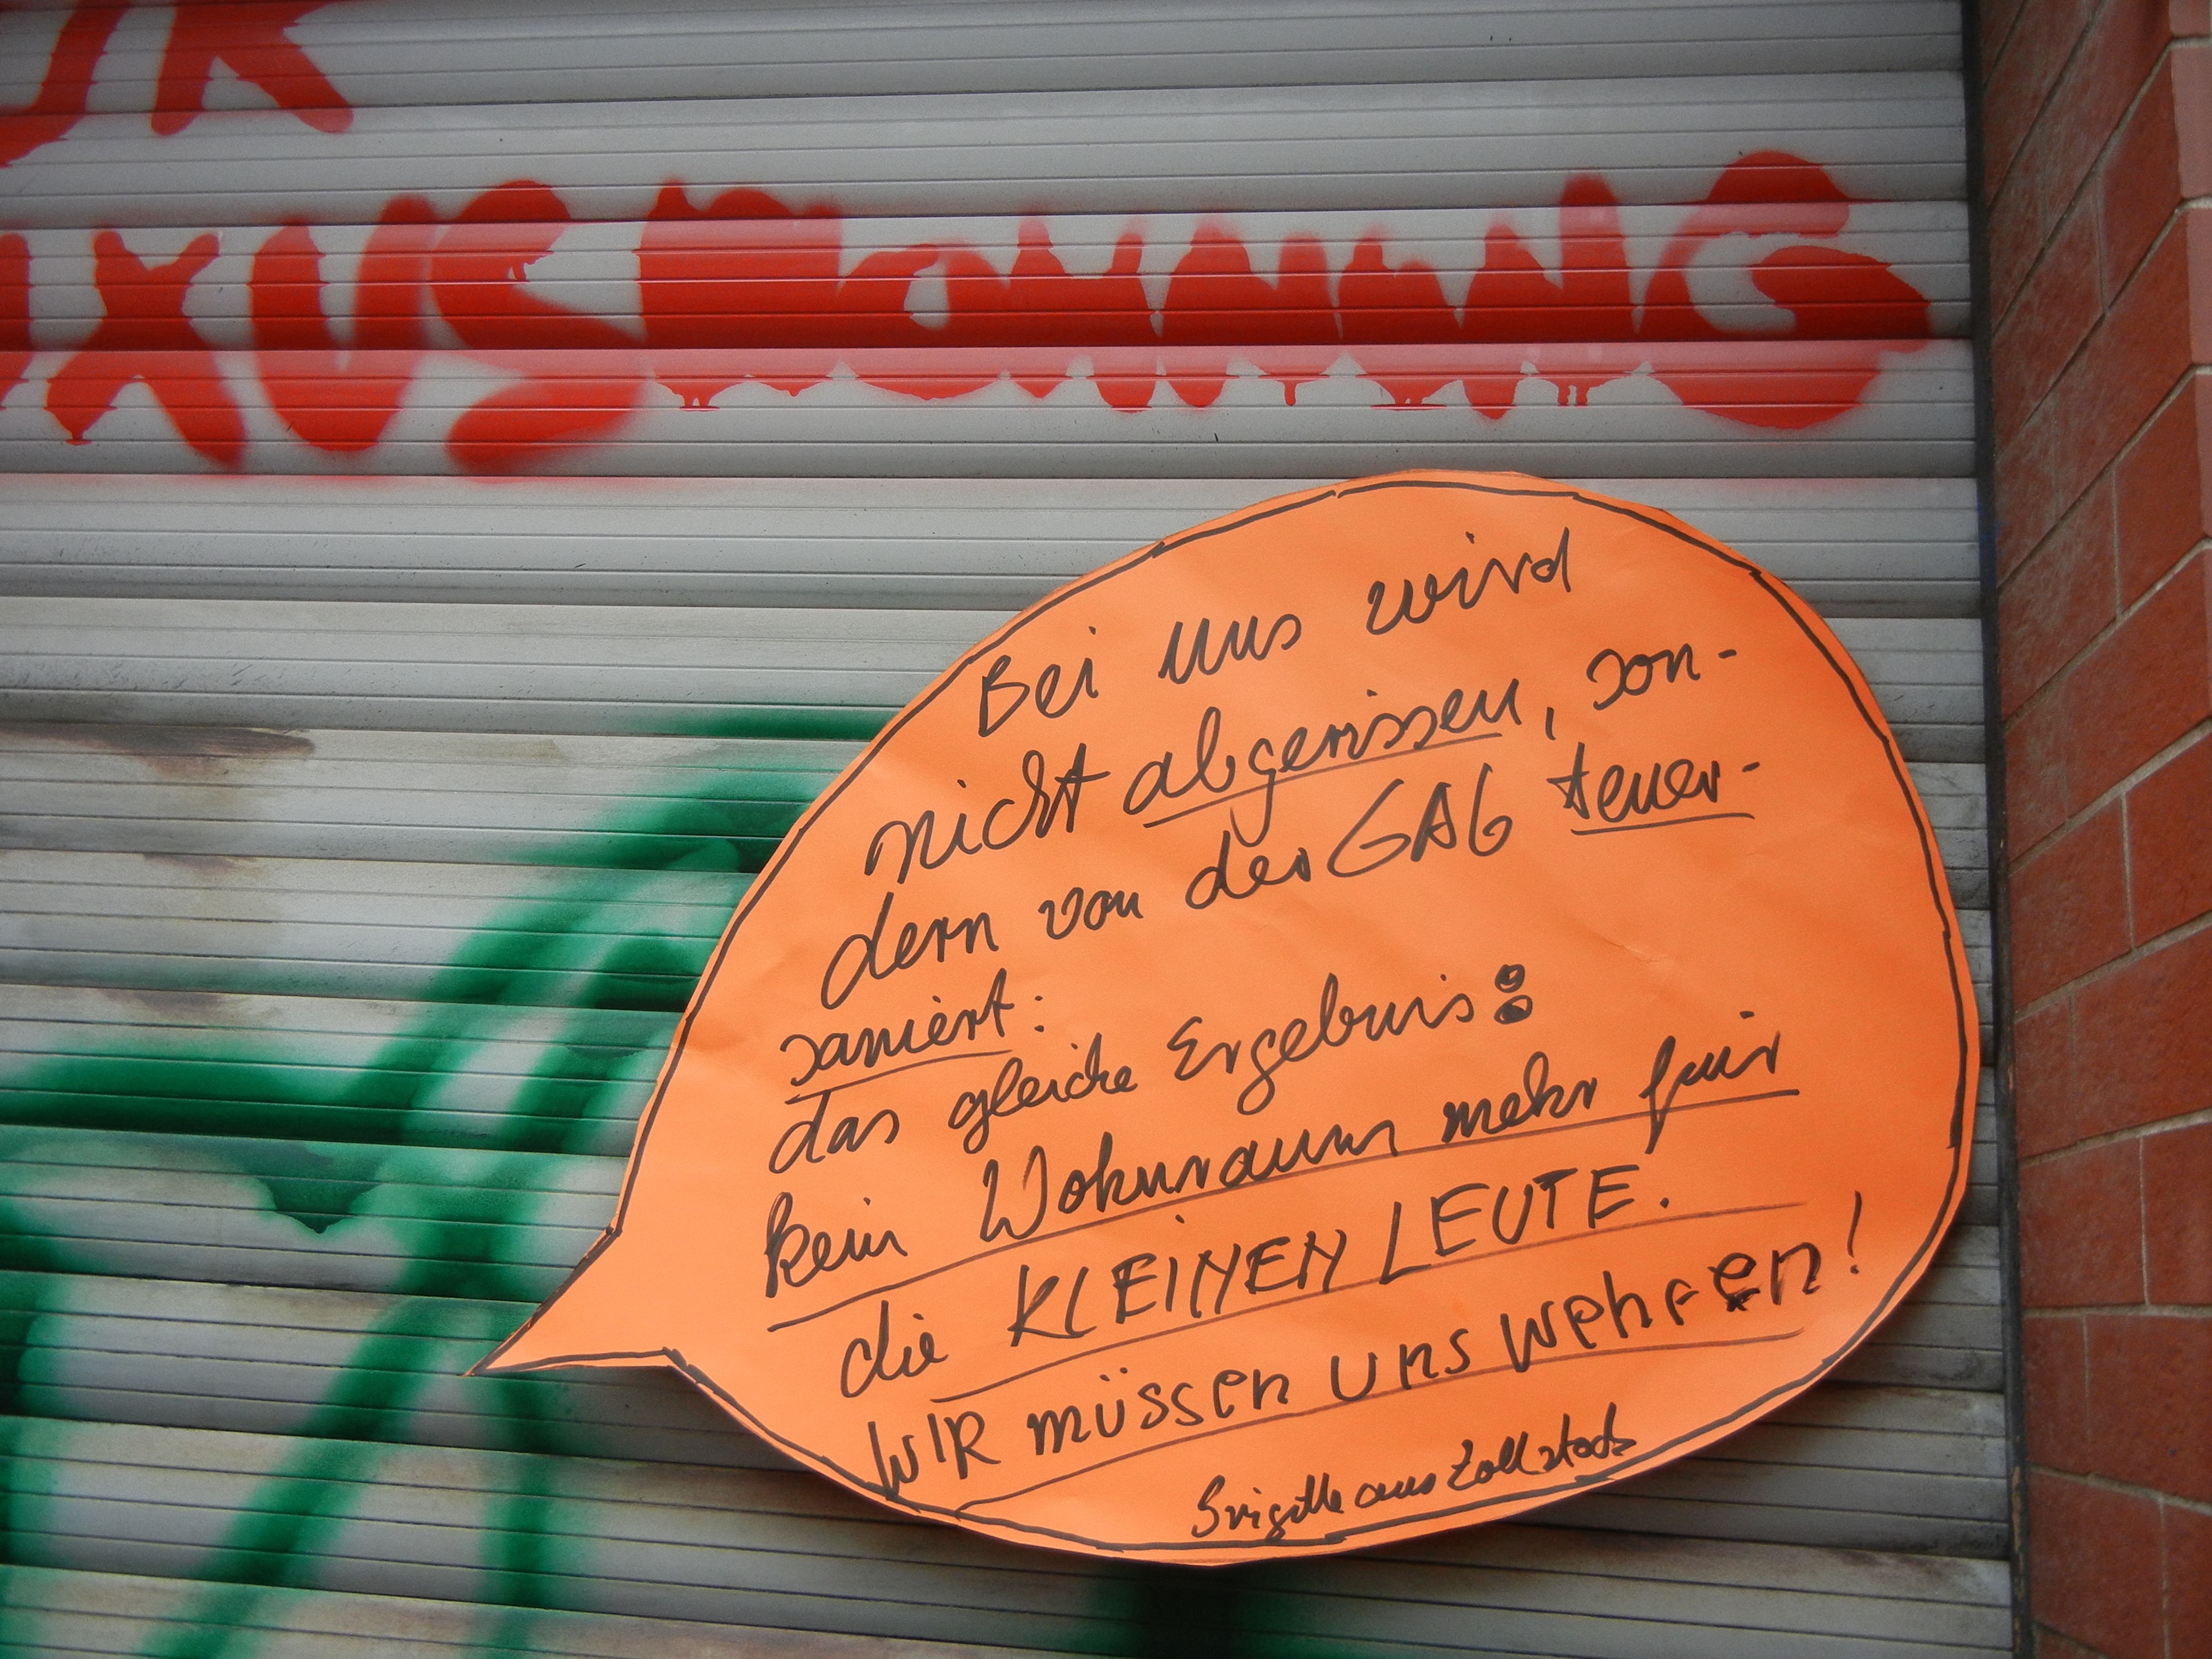 ÜR
UXUSWOHNUNG
Bei uns wird
nicht abgerissen, son-
dern von der GAG teuer-
saniert:
das gleiche Ergebnis:
kein Wohnraum mehr für
die KLEINEN LEUTE.
WIR müssen uns wehren!
Brigitte aus Zollstock